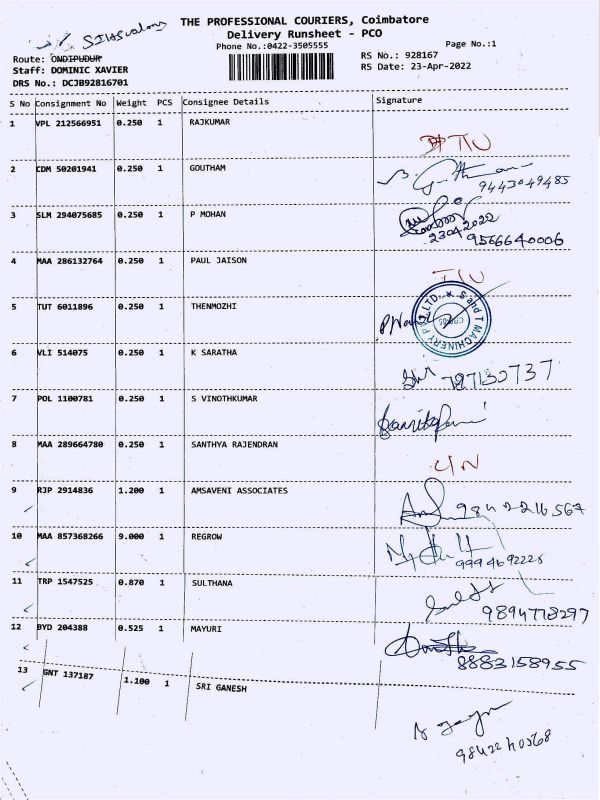 THE PROFESSIONAL COURIERS, Coimbatore
Delivery Runsheet - PCO
Phone No.:0422-3505555
Page No.:1
Route: ONDIPUDUR
RS No.: 928167
Staff: DOMINIC XAVIER
RS Date: 23-Apr-2022
DRS No.: DCJB92816701
S No Consignment No Weight PCS Consignee Details Signature
1 VPL 212566951 0.250 1 RAJKUMAR
2 CDM 50201941 0.250 1 GOUTHAM
9443049485
3 SLM 294075685 0.250 1 P MOHAN
23042022
9566640006
4 MAA 286132764 0.250 1 PAUL JAISON
5 TUT 6011896 0.250 1 THENMOZHI
S and T MACHINERY PVT LTD.
6 VLI 514075 0.250 1 K SARATHA
7 POL 1100781 0.250 1 S VINOTHKUMAR
8 MAA 289664780 0.250 1 SANTHYA RAJENDRAN
9 RJP 2914836 1.200 1 AMSAVENI ASSOCIATES
10 MAA 857368266 9.000 1 REGROW
9994692225
11 TRP 1547525 0.870 1 SULTHANA
9894778297
12 BYD 204388 0.525 1 MAYURI
8883158955
13 GNT 137187 1.100 1 SRI GANESH